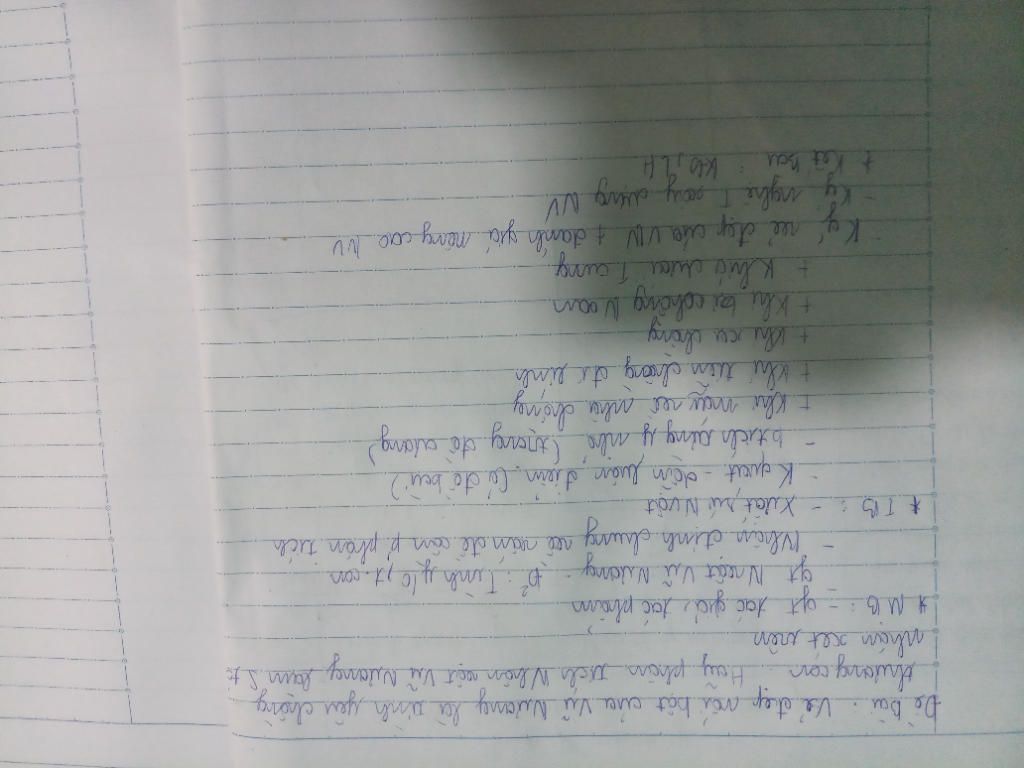 Đề bài: Vẻ đẹp nổi bật của Vũ Nương là tình yêu chồng
thương con. Hãy phân tích Nhân vật Vũ Nương làm S tỏ
nhận xét trên
* MB: - gt tác giả, tác phẩm
gt Nvật Vũ Nương - Đ²: Tình y/c, t. con
- Nhận định chung về vấn đề cần p' phân tích
* TB: - Xuất xứ Nvật
- K quát - dẫn luận điểm (ở đề bài)
- ptích từng ý nhỏ (trong đề cương)
+ Khi mới về nhà chồng
+ Khi tiễn chồng đi lính
+ Khi xa chồng
+ Khi bị chồng N oan
+ Khi dưới T cung
- Kq' vẻ đẹp của VN + đánh giá nâng cao NV
- Kq nghệ T xây dựng NV
* Kết bài: Kđ, LH